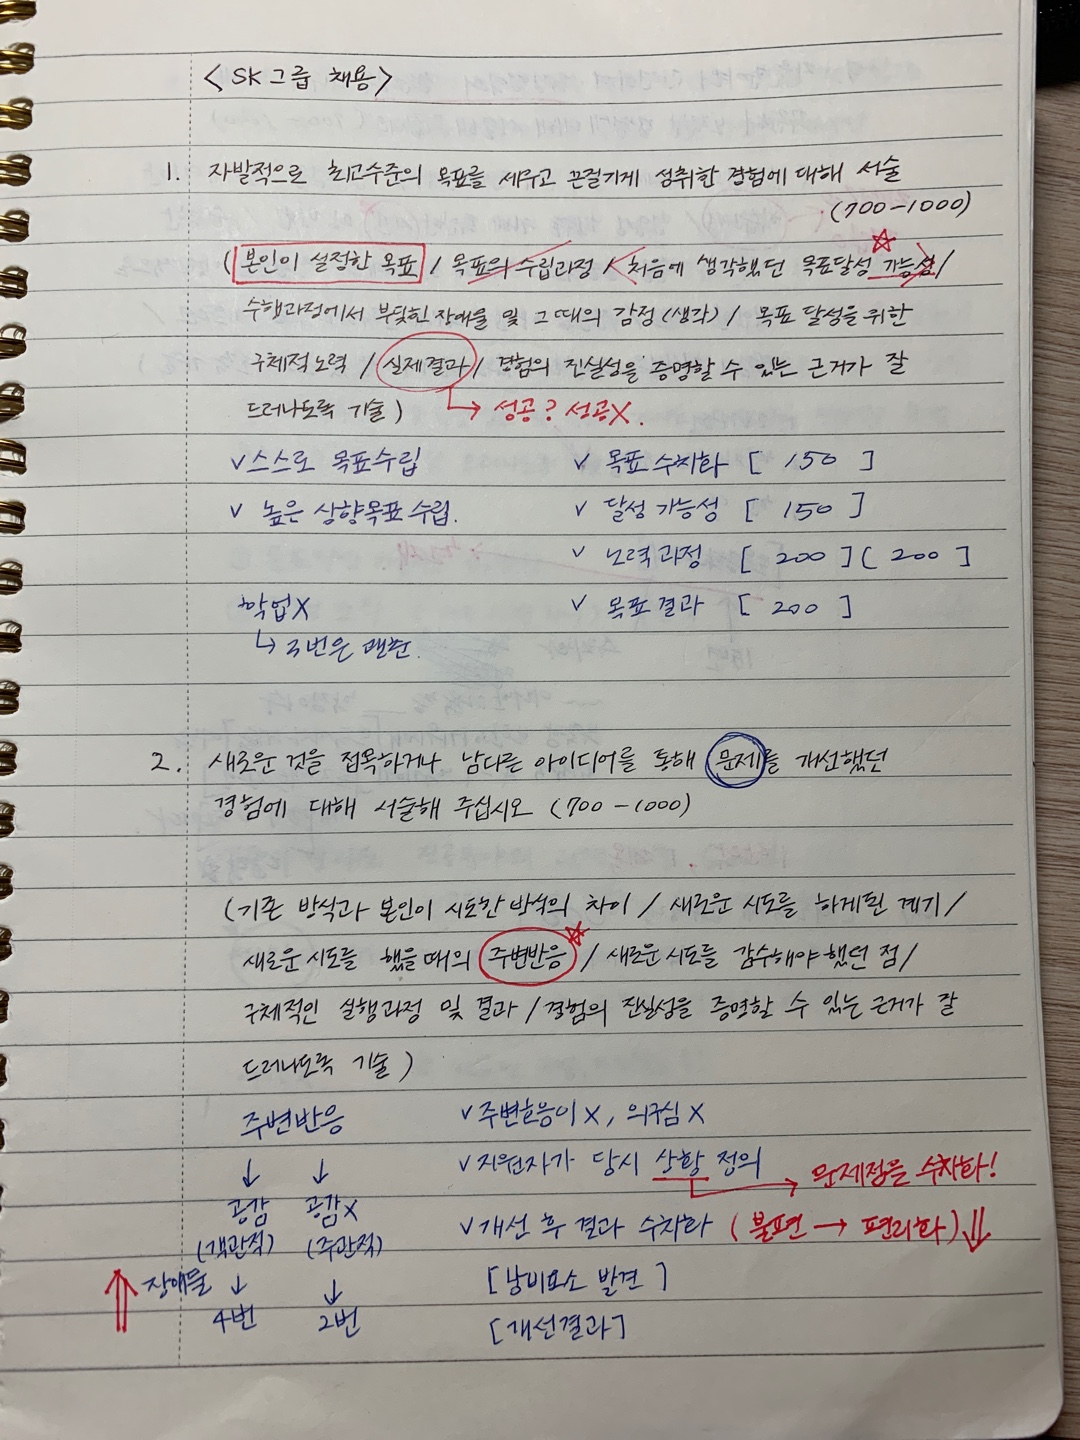 <SK그룹 채용>
1. 자발적으로 최고수준의 목표를 세우고 끈질기게 성취한 경험에 대해 서술
(700-1000)
(본인이 설정한 목표 / 목표의 수립과정 / 처음에 생각했던 목표달성 가능성/
수행과정에서 부딪힌 장애물 및 그때의 감정(생각) / 목표 달성을 위한
구체적노력 / 실제결과 / 경험의 진실성을 증명할 수 있는 근거가 잘
드러나도록 기술)
→ 성공? 성공X.
v 스스로 목표수립 v 목표 수치화 [ 150 ]
v 높은 상향목표 수립. v 달성 가능성 [ 150 ]
v 노력과정 [ 200 ] [ 200 ]
학업X v 목표 결과 [ 200 ]
↳ 3번은 괜춘.
2. 새로운 것을 접목하거나 남다른 아이디어를 통해 문제를 개선했던
경험에 대해 서술해 주십시오 (700-1000)
(기존 방식과 본인이 시도한 방식의 차이 / 새로운 시도를 하게된 계기 /
새로운 시도를 했을때의 주변반응 / 새로운 시도를 감수해야 했던 점 /
구체적인 실행과정 및 결과 / 경험의 진실성을 증명할 수 있는 근거가 잘
드러나도록 기술)
주변반응 v 주변호응이 X, 의구심 X
↓ ↓ v 지원자가 당시 상황 정의 → 문제점을 수치화!
공감 공감X
(객관적) (주관적) v 개선 후 결과 수치화 (불편 → 편리화) ⇓
⇑ 장애물 ↓ ↓ [낭비요소 발견]
4번 2번 [개선결과]